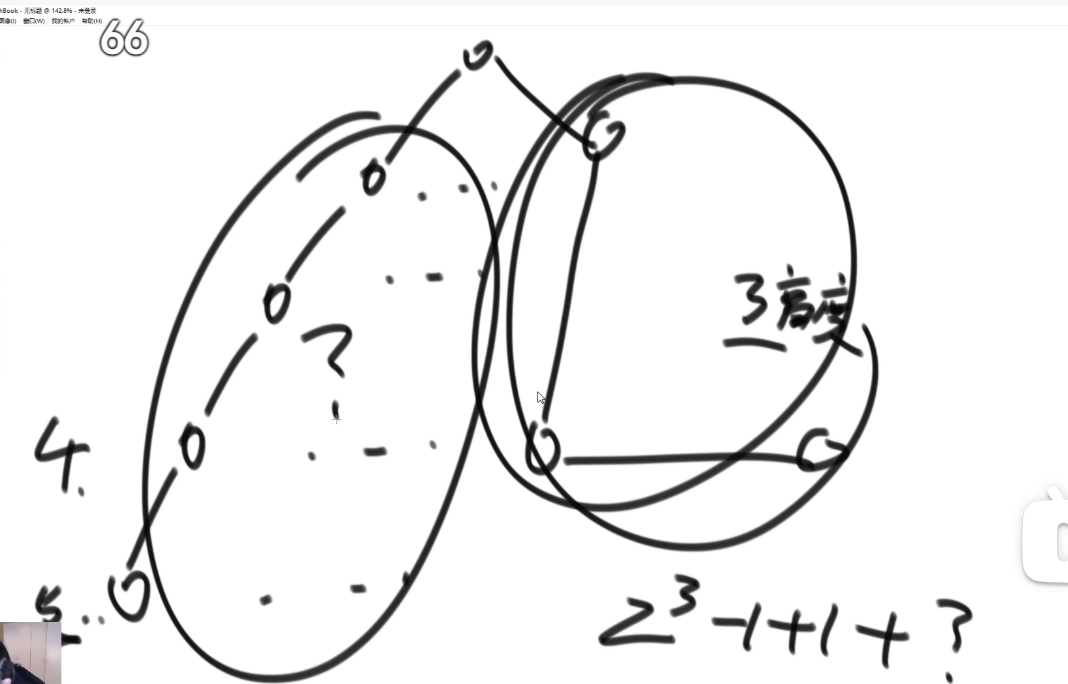 hBook - 无标题 @ 142.8% - 未登录
图像(I) 窗口(W) 我的帐户 帮助(H)
66
3高度
?
4.
5..
2^3-1+1+?